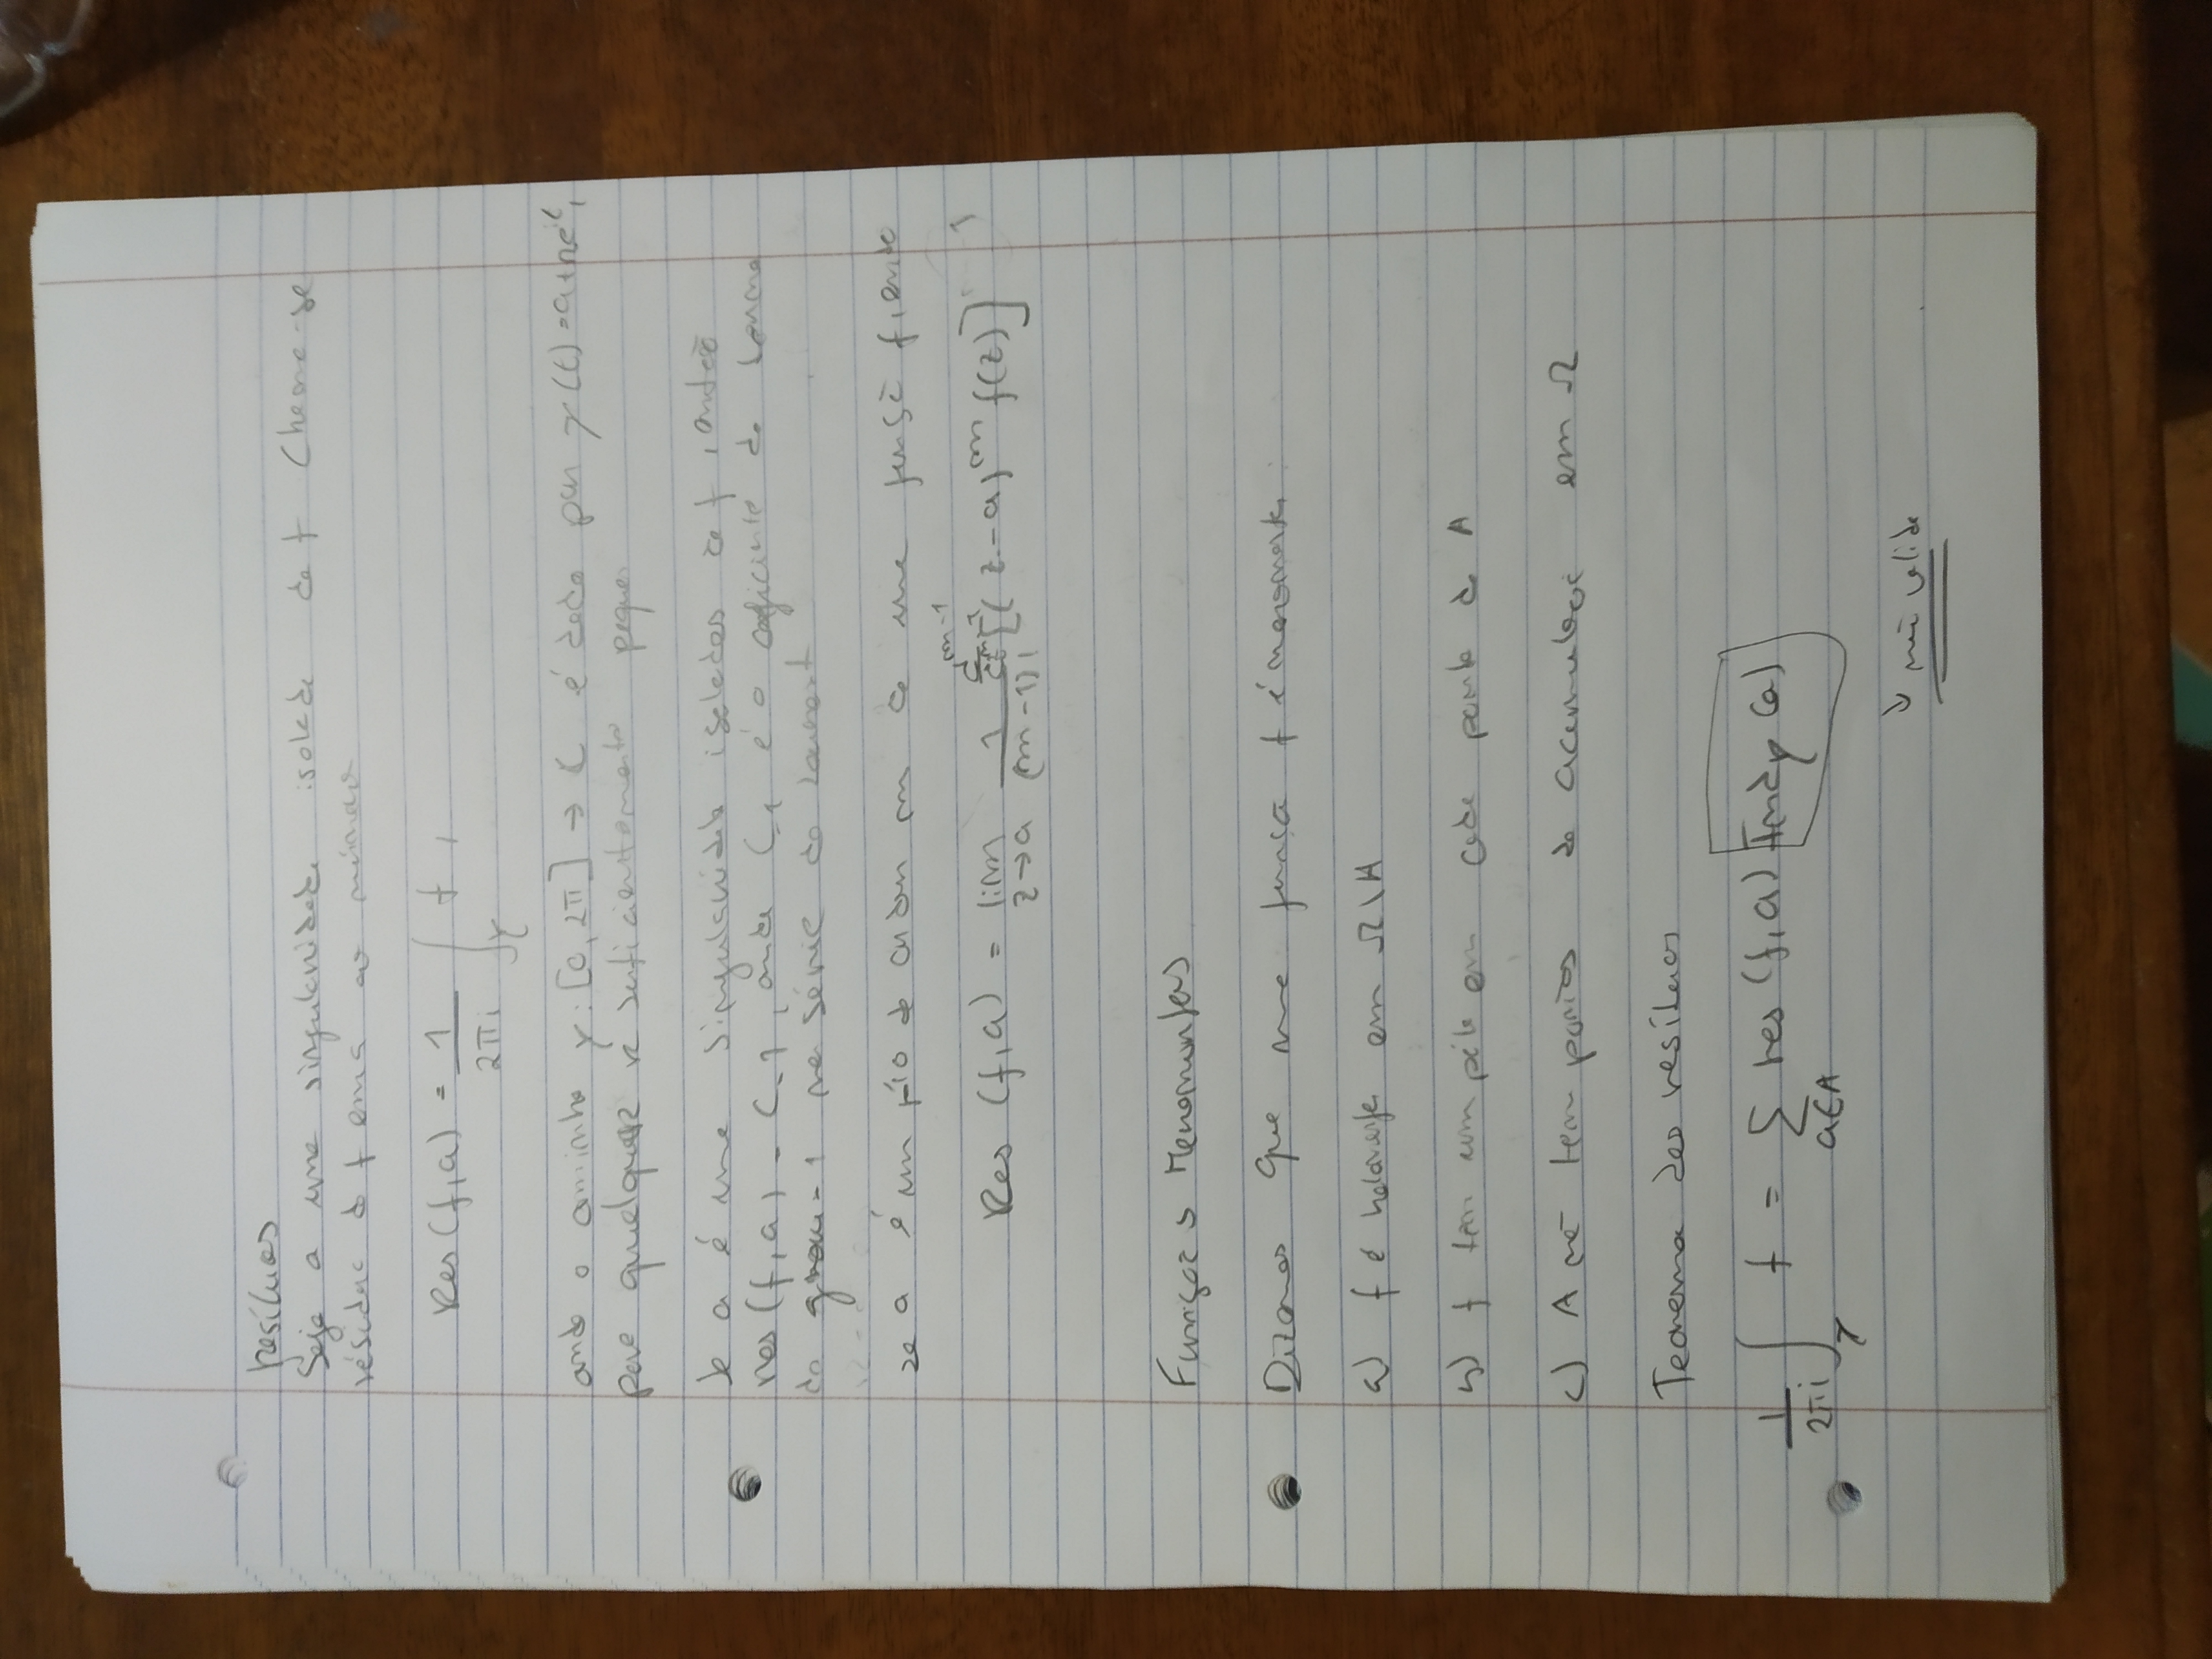 Resíduos
Seja a uma singularidade isolada de f chama-se
resíduo de f em a ao número
Res(f,a) = 1/2πi ∫γ f,
onde o caminho γ:[0,2π] → C é dado por γ(t)=a+re^it,
para qualquer r suficientemente pequeno
Se a é uma singularidade isolada de f, então
Res(f,a) = C-1, onde C-1 é o coeficiente do termo
de grau -1 na série de Laurent
se a é um pólo de ordem m de uma função f, então
Res (f,a) = lim z→a 1/(m-1)! d^m-1/dz^m-1 [(z-a)^m f(z)]
Funções Meromorfas
Dizemos que uma função f é meromorfa
a) f é holomorfa em Ω\A
b) f tem um pólo em cada ponto de A
c) A não tem pontos de acumulação em Ω
Teorema dos resíduos
1/2πi ∫γ f = Σ a∈A res(f,a) Indγ(a)